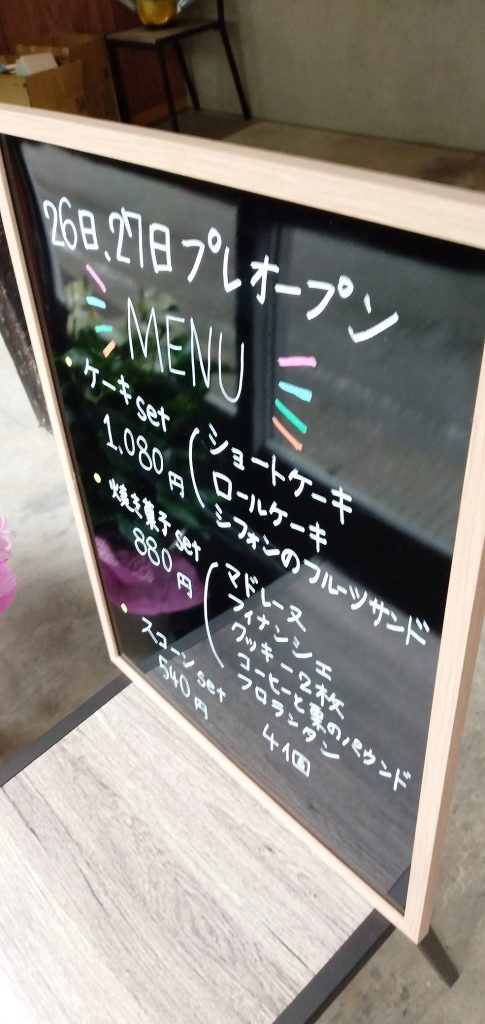 26日、27日プレオープン
MENU
・ケーキset
1,080円
ショートケーキ
ロールケーキ
シフォンのフルーツサンド
・焼き菓子set
880円
マドレーヌ
フィナンシェ
クッキー2枚
コーヒーと栗のパウンド
フロランタン
・スコーンset
540円
4個